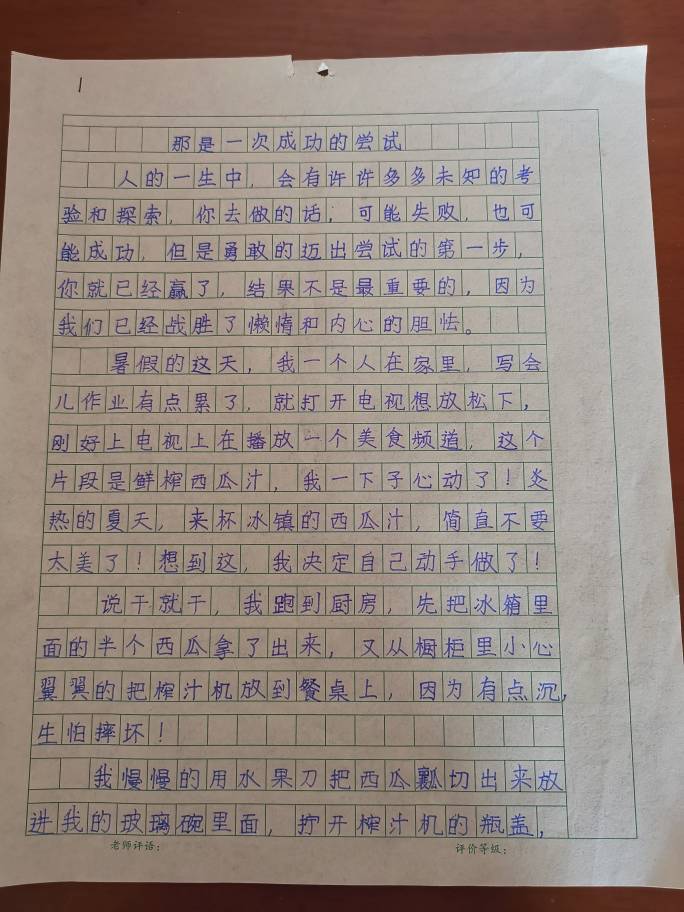 1
那是一次成功的尝试
人的一生中，会有许许多多未知的考
验和探索，你去做的话，可能失败，也可
能成功，但是勇敢的迈出尝试的第一步，
你就已经赢了，结果不是最重要的，因为
我们已经战胜了懒惰和内心的胆怯。
暑假的这天，我一个人在家里，写会
儿作业有点累了，就打开电视想放松下，
刚好上电视上在播放一个美食频道，这个
片段是鲜榨西瓜汁，我一下子心动了！炎
热的夏天，来杯冰镇的西瓜汁，简直不要
太美了！想到这，我决定自己动手做了！
说干就干，我跑到厨房，先把冰箱里
面的半个西瓜拿了出来，又从橱柜里小心
翼翼的把榨汁机放到餐桌上，因为有点沉，
生怕摔坏！
我慢慢的用水果刀把西瓜瓤切出来放
进我的玻璃碗里面，拧开榨汁机的瓶盖，
老师评语： 评价等级：